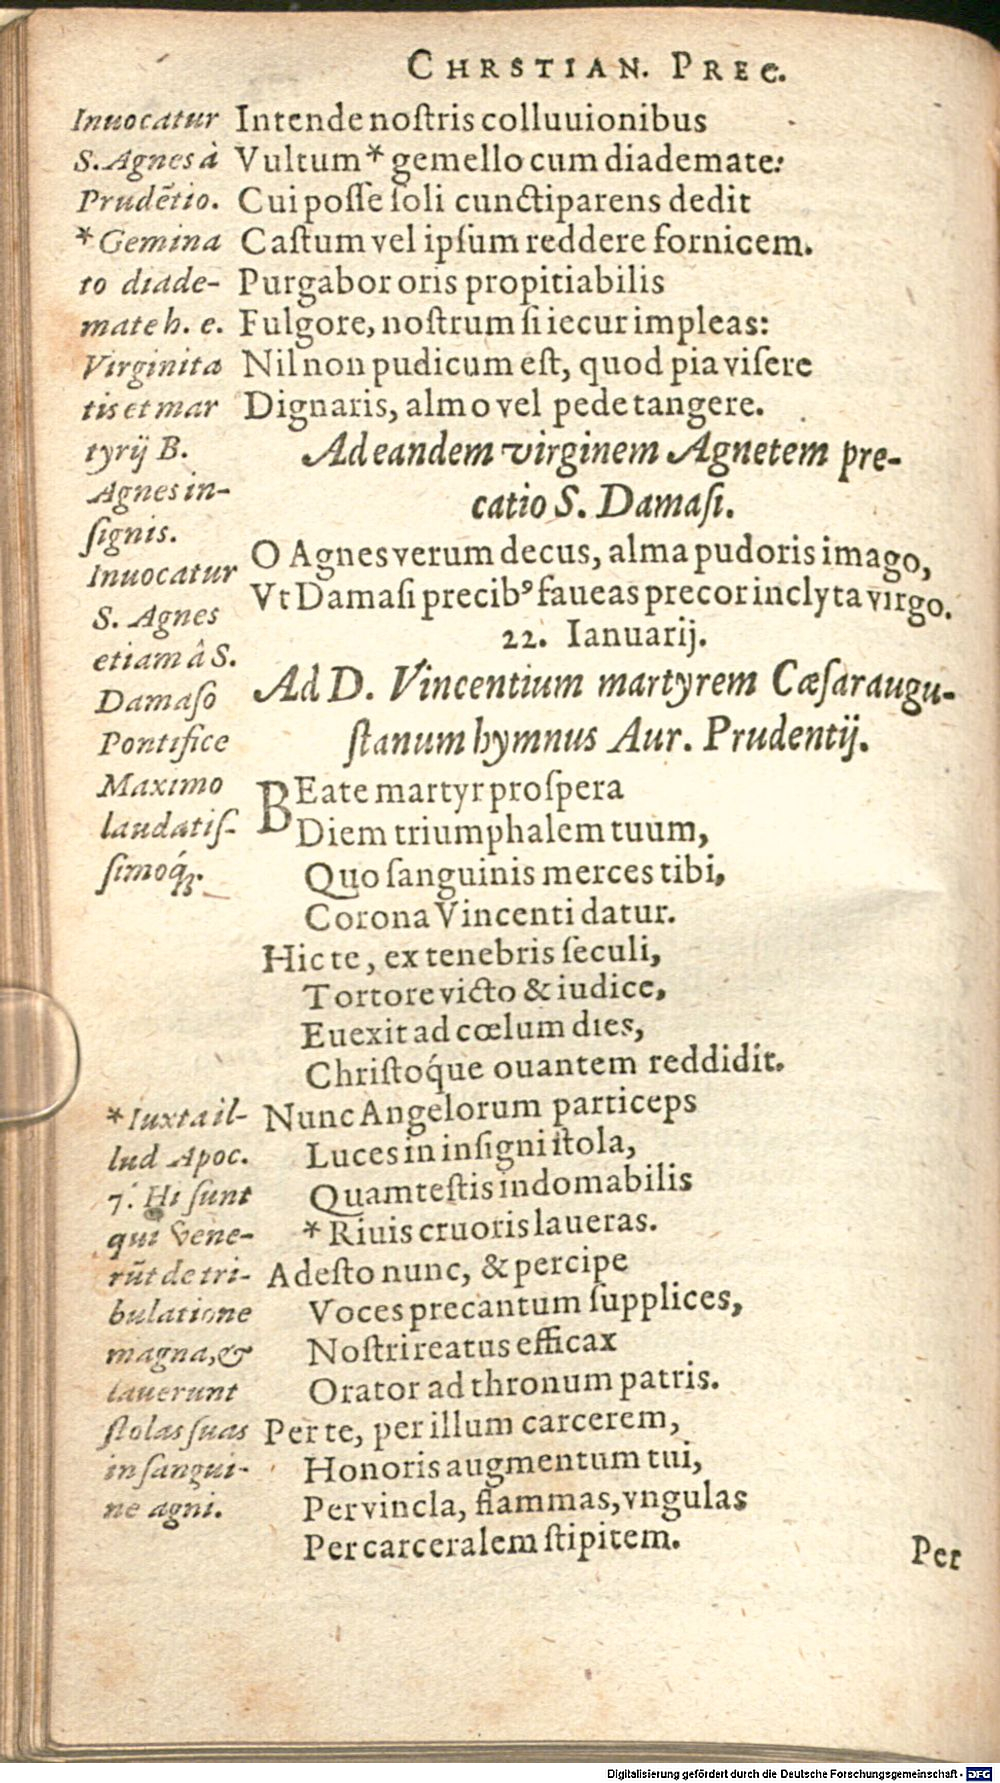 CHRSTIAN. PREC.
Intende noſtris colluuionibus
Vultum* gemello cum diademate:
Cui poſſe ſoli cunctiparens dedit
Caſtum vel ipſum reddere fornicem.
Purgabor oris propitiabilis
Fulgore, noſtrum ſi iecur impleas:
Nil non pudicum eſt, quod pia viſere
Dignaris, almo vel pede tangere.
Inuocatur
S. Agnes à
Prudẽtio.
*Gemina
to diade-
mate h. e.
Virginita
tis et mar
tyrij B.
Agnes in-
ſignis.
Ad eandem virginem Agnetem pre-
catio S. Damaſi.
O Agnes verum decus, alma pudoris imago,
Vt Damaſi precibꝰ faueas precor inclyta virgo.
Inuocatur
S. Agnes
etiam â S.
Damaſo
Pontifice
Maximo
laudatiſ-
ſimoq́ꝫ.
22. Ianuarij.
Ad D. Vincentium martyrem Cæſaraugu-
ſtanum hymnus Aur. Prudentij.
BEate martyr proſpera
Diem triumphalem tuum,
Quo ſanguinis merces tibi,
Corona Vincenti datur.
Hic te, ex tenebris ſeculi,
Tortore victo & iudice,
Euexit ad cœlum dies,
Chriſtoq́ue ouantem reddidit.
Nunc Angelorum particeps
Luces in inſigni ſtola,
Quam teſtis indomabilis
*Riuis cruoris laueras.
Adeſto nunc, & percipe
Voces precantum ſupplices,
Noſtri reatus efficax
Orator ad thronum patris.
Per te, per illum carcerem,
Honoris augmentum tui,
Per vincla, flammas, vngulas
Per carceralem ſtipitem.
*Iuxta il-
lud Apoc.
7. Hi ſunt
qui vene-
rũt de tri-
bulatione
magna, &
lauerunt
ſtolas ſuas
in ſangui-
ne agni.
Per
Digitalisierung gefördert durch die Deutsche Forschungsgemeinschaft - DFG